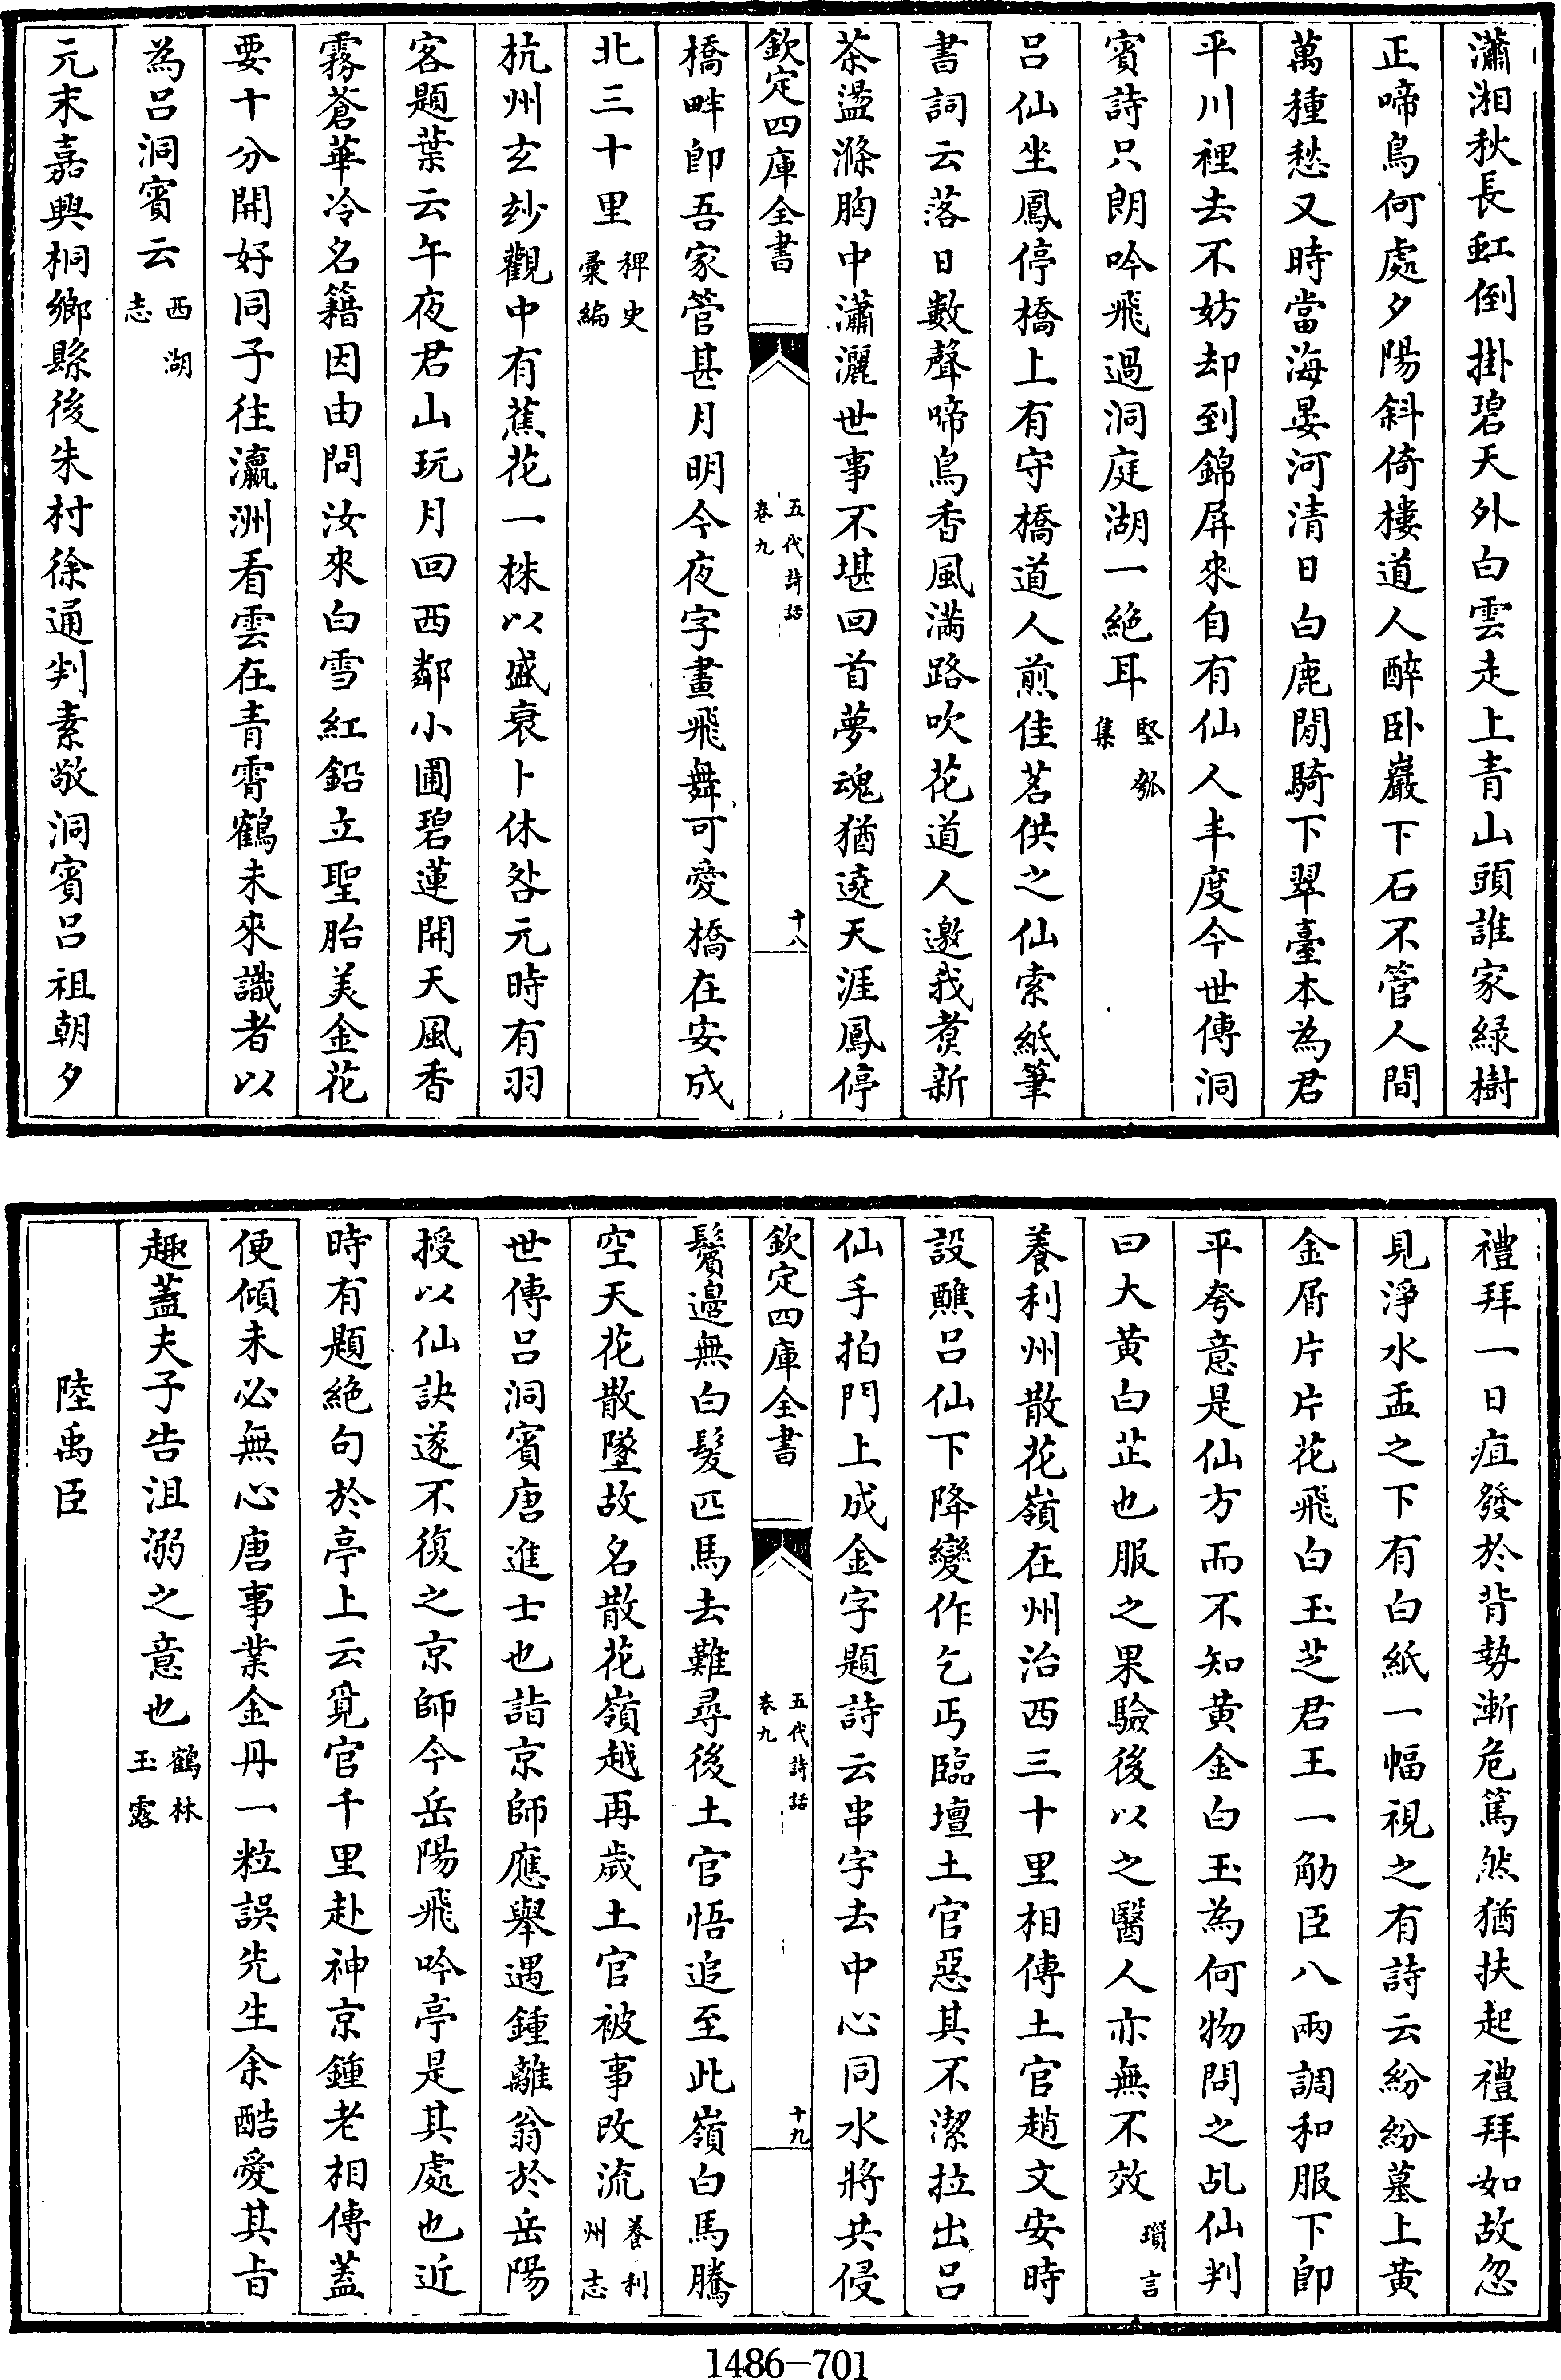 瀟湘秋長虹倒掛碧天外白雲走上青山頭誰家緑樹
正啼鳥何處夕陽斜倚樓道人醉卧巖下石不管人間
萬種愁又時當海晏河清日白鹿閒騎下翠臺本為君
平川裡去不妨却到錦屏來自有仙人丰度今世傳洞
賓詩只朗吟飛過洞庭湖一絶耳堅瓠集
吕仙坐鳳停橋上有守橋道人煎佳茗供之仙索紙筆
書詞云落日數聲啼鳥香風滿路吹花道人邀我煑新
茶盪滌胸中瀟灑世事不堪回首夢魂猶遶天涯鳳停
欽定四庫全書 五代詩話卷九 十八
橋畔卽吾家管甚月明今夜字畫飛舞可愛橋在安成
北三十里稗史彙編
杭州玄玅觀中有蕉花一株以盛衰卜休咎元時有羽
客題葉云午夜君山玩月回西鄰小圃碧蓮開天風香
霧蒼華冷名籍因由問汝來白雪紅鉛立聖胎美金花
要十分開好同子往瀛洲看雲在青霄鶴未來識者以
為吕洞賓云西湖志
元末嘉興桐鄉縣後朱村徐通判素敬洞賓吕祖朝夕
禮拜一日疽發於背勢漸危篤然猶扶起禮拜如故忽
見淨水盂之下有白紙一幅視之有詩云紛紛墓上黄
金屑片片花飛白玉芝君王一觔臣八兩調和服下卽
平夸意是仙方而不知黄金白玉為何物問之乩仙判
曰大黄白芷也服之果驗後以之醫人亦無不效瑣言
養利州散花嶺在州治西三十里相傳土官趙文安時
設醮吕仙下降變作乞丐臨壇土官惡其不潔拉出吕
仙手拍門上成金字題詩云串字去中心同水將共侵
欽定四庫全書 五代詩話卷九 十九
鬢邊無白髮匹馬去難尋後土官悟追至此嶺白馬騰
空天花散墜故名散花嶺越再歲土官被事改流養利州志
世傳吕洞賓唐進士也詣京師應舉遇鍾離翁於岳陽
授以仙訣遂不復之京師今岳陽飛吟亭是其處也近
時有題絶句於亭上云覓官千里赴神京鍾老相傳蓋
便傾未必無心唐事業金丹一粒誤先生余酷愛其旨
趣蓋夫子告沮溺之意也鶴林玉露
陸禹臣
1486-701